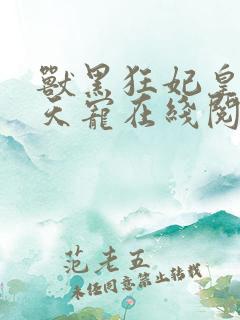 獸黑狂妃皇
天寵在綫閱
范老五
未经同意禁止转载